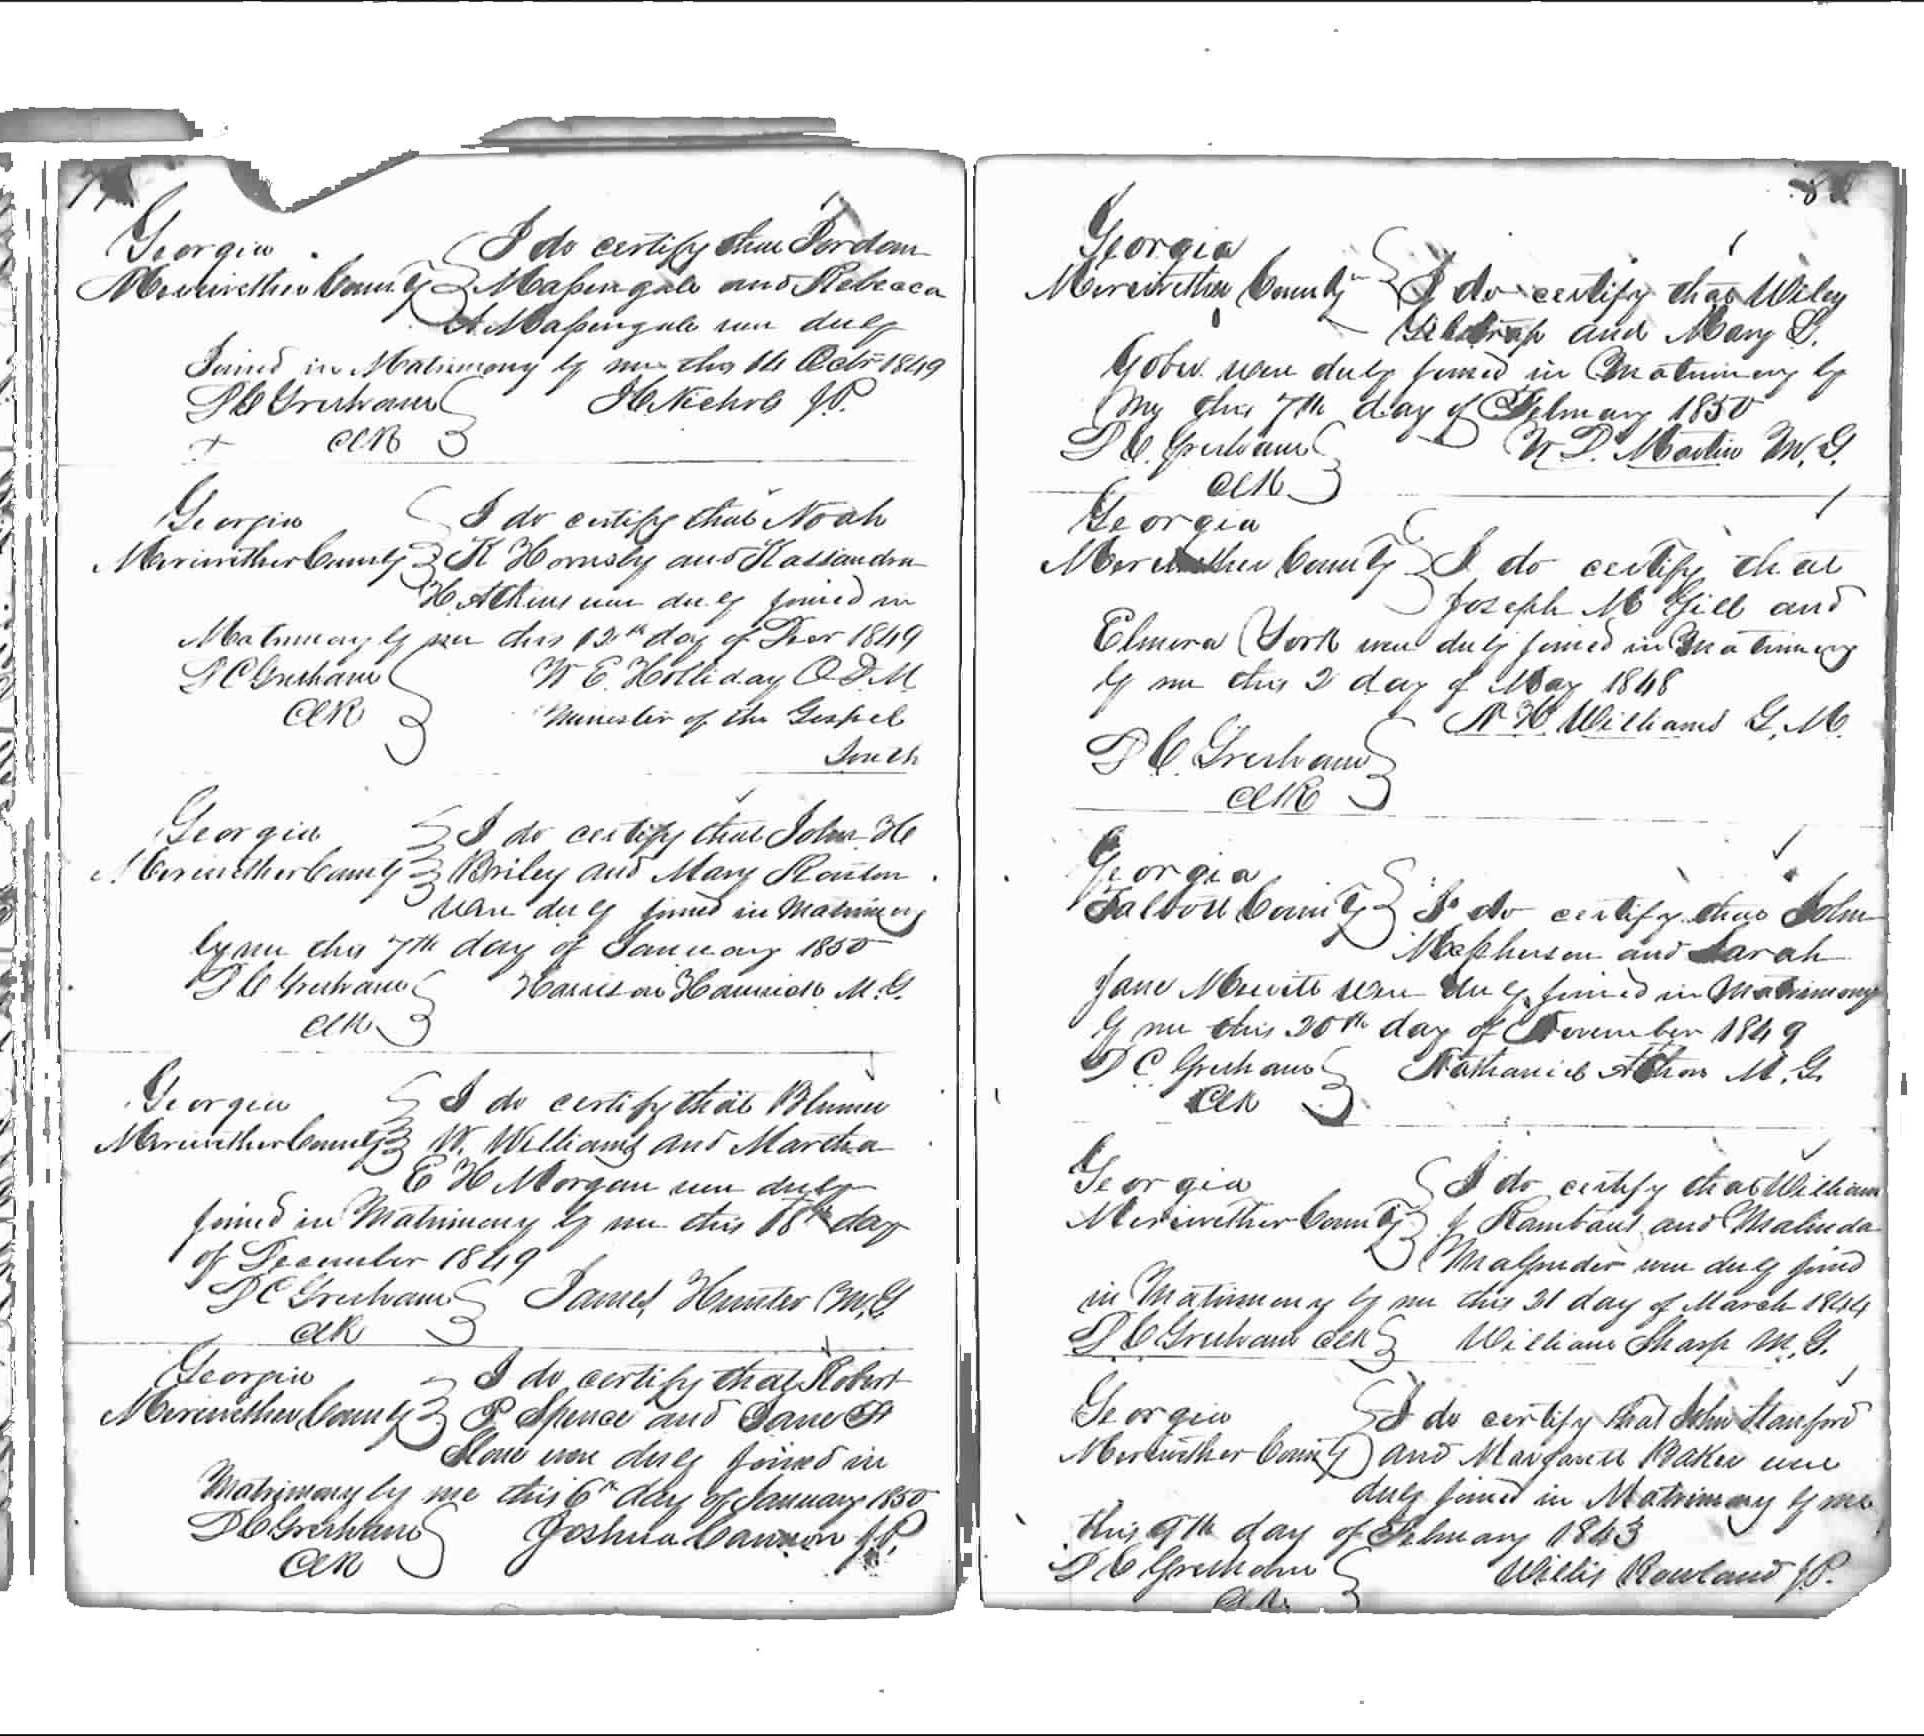 Georgia I do certify that Jordan
Meriwether County Massengale and Rebecca
A Massengale were duly
Joined in Matrimony by me this 14 Octr 1849
D C Gresham J C Nichols J.P.
Clk
Georgia I do certify that Noah
Meriwether County K Hornsby and Kassandra
H. Atkins were duly joined in
Matrimony by me this 12th day of Decr 1849
D C Gresham W E. Holliday O D. M.
Clk Minister of the Gospel
South
Georgia I do certify that John H
Meriwether County Briley and Mary
were duly joined in Matrimony
by me this 7th day of January 1850
D C Gresham Harrison M. G.
Clk
Georgia I do certify that
Meriwether County W. Williams and Martha
E H Morgan were duly
joined in Matrimony by me this 18th day
of December 1849
D C Gresham James Hunter M. G.
Clk
Georgia I do certify that Robert
Meriwether County P Spence and Jane
were duly joined in
Matrimony by me this 6th day of January 1850
D C Gresham Joshua Cannon J.P.
Clk
Georgia
Meriwether County I do certify that Wiley
Gilstrap and Mary
Gober were duly joined in Matrimony by
My this 7th day of February 1850
D C. Gresham W. D. Martin M. G.
Clk
Georgia
Meriwether County I do certify that
Joseph M Gill and
Elmira York were duly joined in Matrimony
by me this 2 day of May 1848
W. H. Williams G. M.
D C. Gresham
Clk
Georgia
Talbott County I do certify that John
McPherson and Sarah
Jane were duly joined in Matrimony
by me this 20th day of November 1849
D C. Gresham Nathaniel M. G.
Clk
Georgia I do certify that William
Meriwether County J and Malinda
were duly joind
in Matrimony by me this 21 day of March 1844
D C Gresham Clk William Sharp M. G.
Georgia I do certify that John Stanford
Meriwether County and Margarett Baker were
duly joined in Matrimony by me
this 9th day of February 1843
D C Gresham Willis Rowland J.P.
Clk